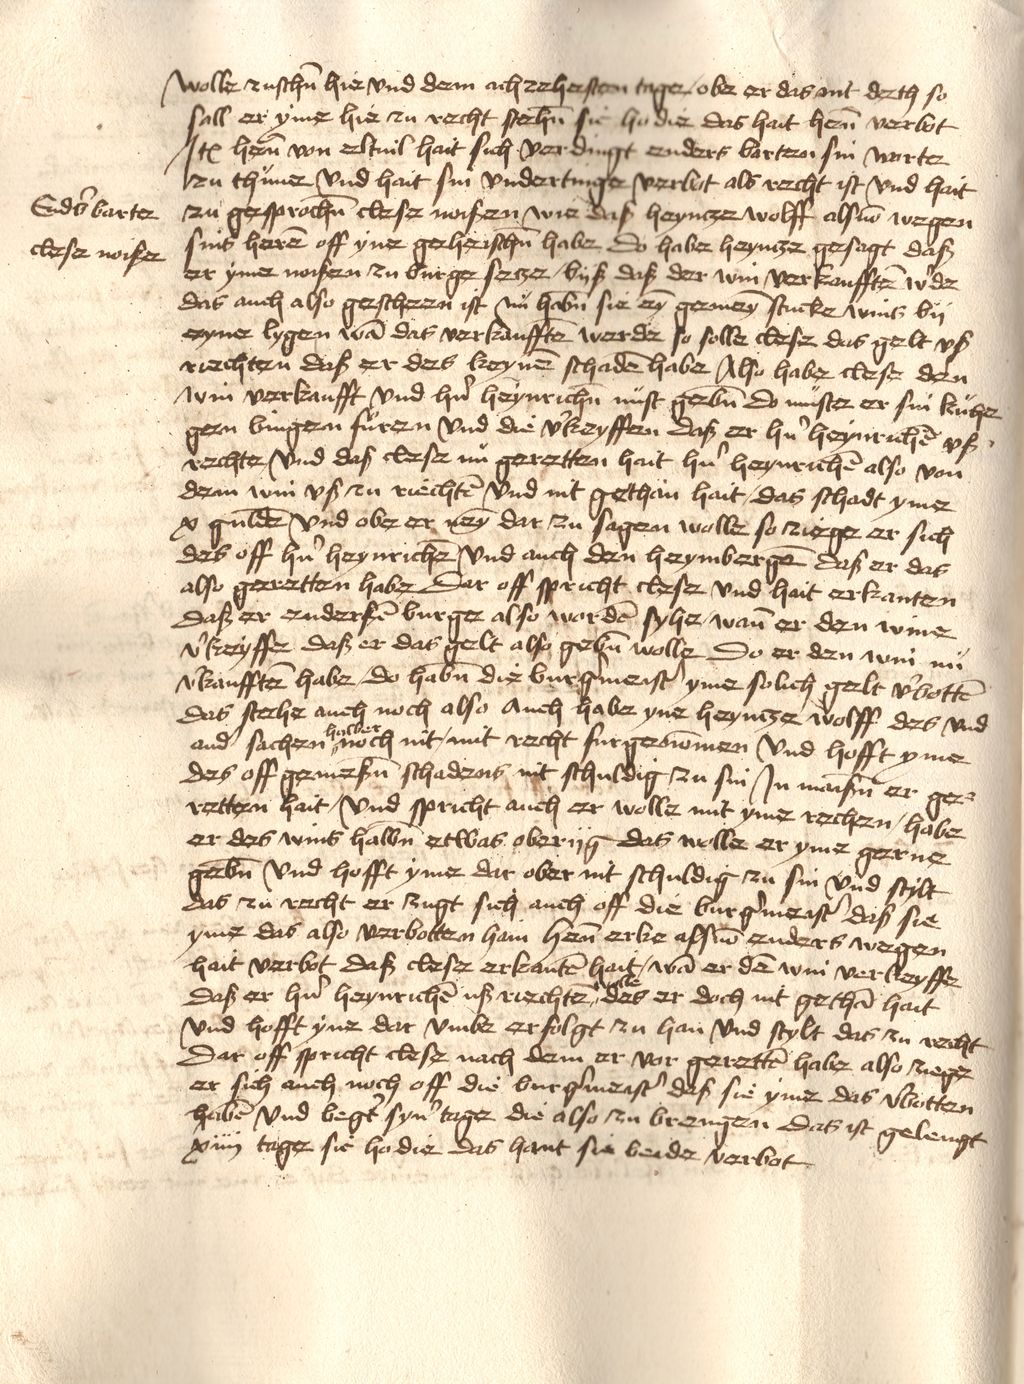 wolle zuschñ hie vnd dem achzehesten tage / obe er das ant dethe so
sall er yme hie zu recht stehñ sie hodie das hait henñ verbot
Itē henñ von eltuil hait sich verdingt enders barten sin worte
zu thüne vnd hait sin vndertinge verbot als recht ist vnd hait
Endrs barter
clese noißer
zu gesprochñ clese noißen wie daß heyncze wolff als vō wegen
sins herē off yne geheischñ habe do habe heyncze gesagt daß
er yme noißen zu burge secze / byß daß der win verkaufftē w'de
das auch also gescheen ist nū habñ sie eȳ gemeȳ stucke wins bij
eyne lygen wā das verkaufftē werde so solle clese das gelt vß
riechten daß er des keynē schadē habe Also habe clese den
win verkaufft vnd h'n heynrichñ nust gebñ do muste er sin kuche
gen bingen furen vnd die v'keyffen daß er h'n heynrichē vß
rechte / vnd daß clese nū geretten hait h'n heynrichē also von
dem win vß zu riechtē vnd nit gethan hait / das schadt yme
x guldē vnd obe er neȳ dar zu sagen wolle so ziege er sich
des off h'n heynrichē vnd auch den heymbergē daß er das
also geretten habe Dar off spricht clese vnd hait erkanten
daß er enderßē burge also wordē syhe / wañ er den wine
v'keyffe daß er das gelt also gebñ wolle Do er den win nū
v'kaufftē habe / do habñ die burg'meist' yme solich gelt v'bottē
das stehe auch noch also Auch habe yne heyncze wolff des vnd
and' sachen halber noch nit / mit recht furgenōmen vnd hofft yme
des off gemeßñ schadens nit schuldig zu sin In maißñ er ge=
retten hait / vnd spricht auch er wolle mit yme rechen / habe
er des wins halbñ etwas oberijg das wolle er yme gerne
gebñ vnd hofft yme dar ober nit schuldig zu sin vnd stylt
das zu recht er zugt sich auch off die burg'meist' daß sie
yme das also verbotten hain henñ erke als vō enders wegen
hait verbot daß clese erkantē hait / wā er dē win verkeyffe
daß er h'n heynrichē uß riechtē wolle des er doch nit gethā hait
vnd hofft yne dar vmbe erfolgt zu han vnd stylt das zu recht
Dar off spricht clese nach dem er vor gerettē habe also ziege
er sich auch noch off die burg'meist' daß sie yme das v'botten
habē vnd begt' syn' tage die also zu brengen das ist gelengt
xiiij tage sie hodie das hant sie beide verbot